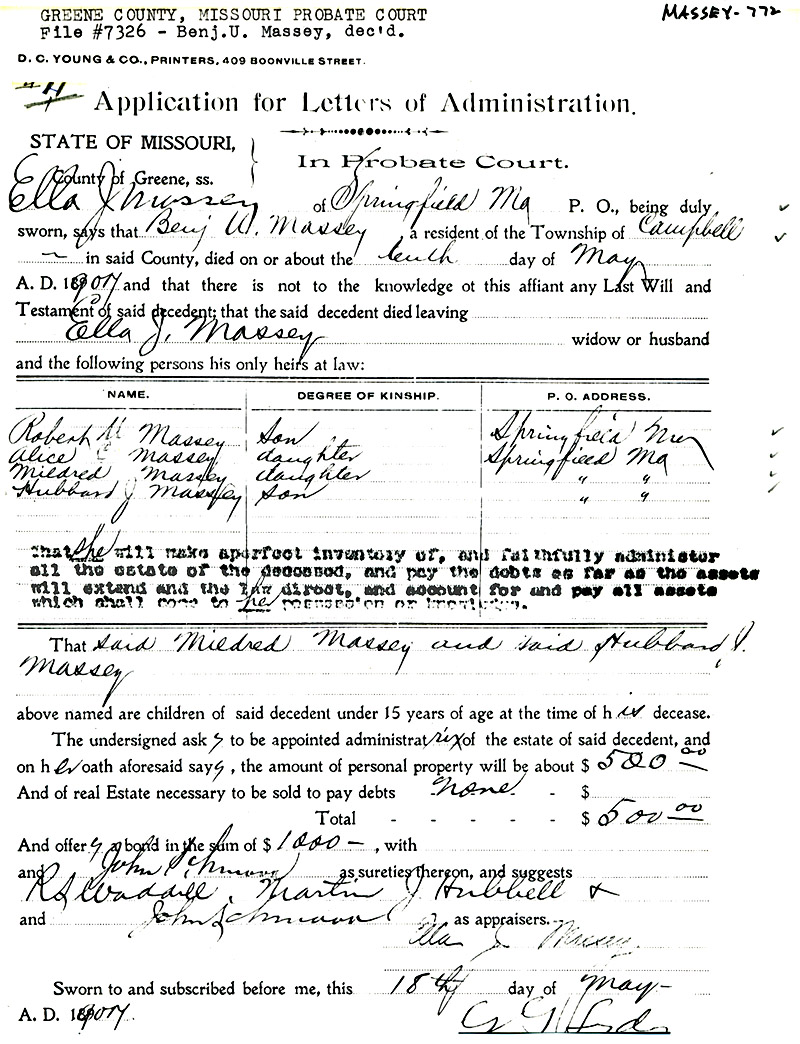 GREENE COUNTY, MISSOURI PROBATE COURT
File #7326 - Benj.U. Massey, dec'd.
MASSEY-772
D. C. YOUNG & CO., PRINTERS, 409 BOONVILLE STREET.
Application for Letters of Administration.
STATE OF MISSOURI,
County of Greene, ss.
In Probate Court.
Ella J Massey of Springfield Mo P. O., being duly
sworn, says that Benj U. Massey, a resident of the Township of Campbell
in said County, died on or about the tenth day of May
A. D. 1907 and that there is not to the knowledge of this affiant any Last Will and
Testament of said decedent; that the said decedent died leaving
Ella J. Massey widow or husband
and the following persons his only heirs at law:
NAME. DEGREE OF KINSHIP. P. O. ADDRESS.
Robert U Massey son Springfield Mo
Alice E Massey daughter Springfield Mo
Mildred Massey daughter " "
Hubbard J Massey son " "
That she will make a perfect inventory of, and faithfully administer
all the estate of the deceased, and pay the debts as far as the assets
will extend and the law direct, and account for and pay all assets
which shall come to her possession or knowledge.
That said Mildred Massey and said Hubbard J.
Massey
above named are children of said decedent under 15 years of age at the time of his decease.
The undersigned asks to be appointed administratrix of the estate of said decedent, and
on her oath aforesaid says, the amount of personal property will be about $ 500 00
And of real Estate necessary to be sold to pay debts none - $
Total - - - - - $ 500 00
And offers a bond in the sum of $ 1000 -, with
and John Schmook as sureties thereon, and suggests
R S Waddill, Martin J Hubbell &
and John Schmook as appraisers.
Ella J Massey
Sworn to and subscribed before me, this 18th day of May-
A. D. 1907.